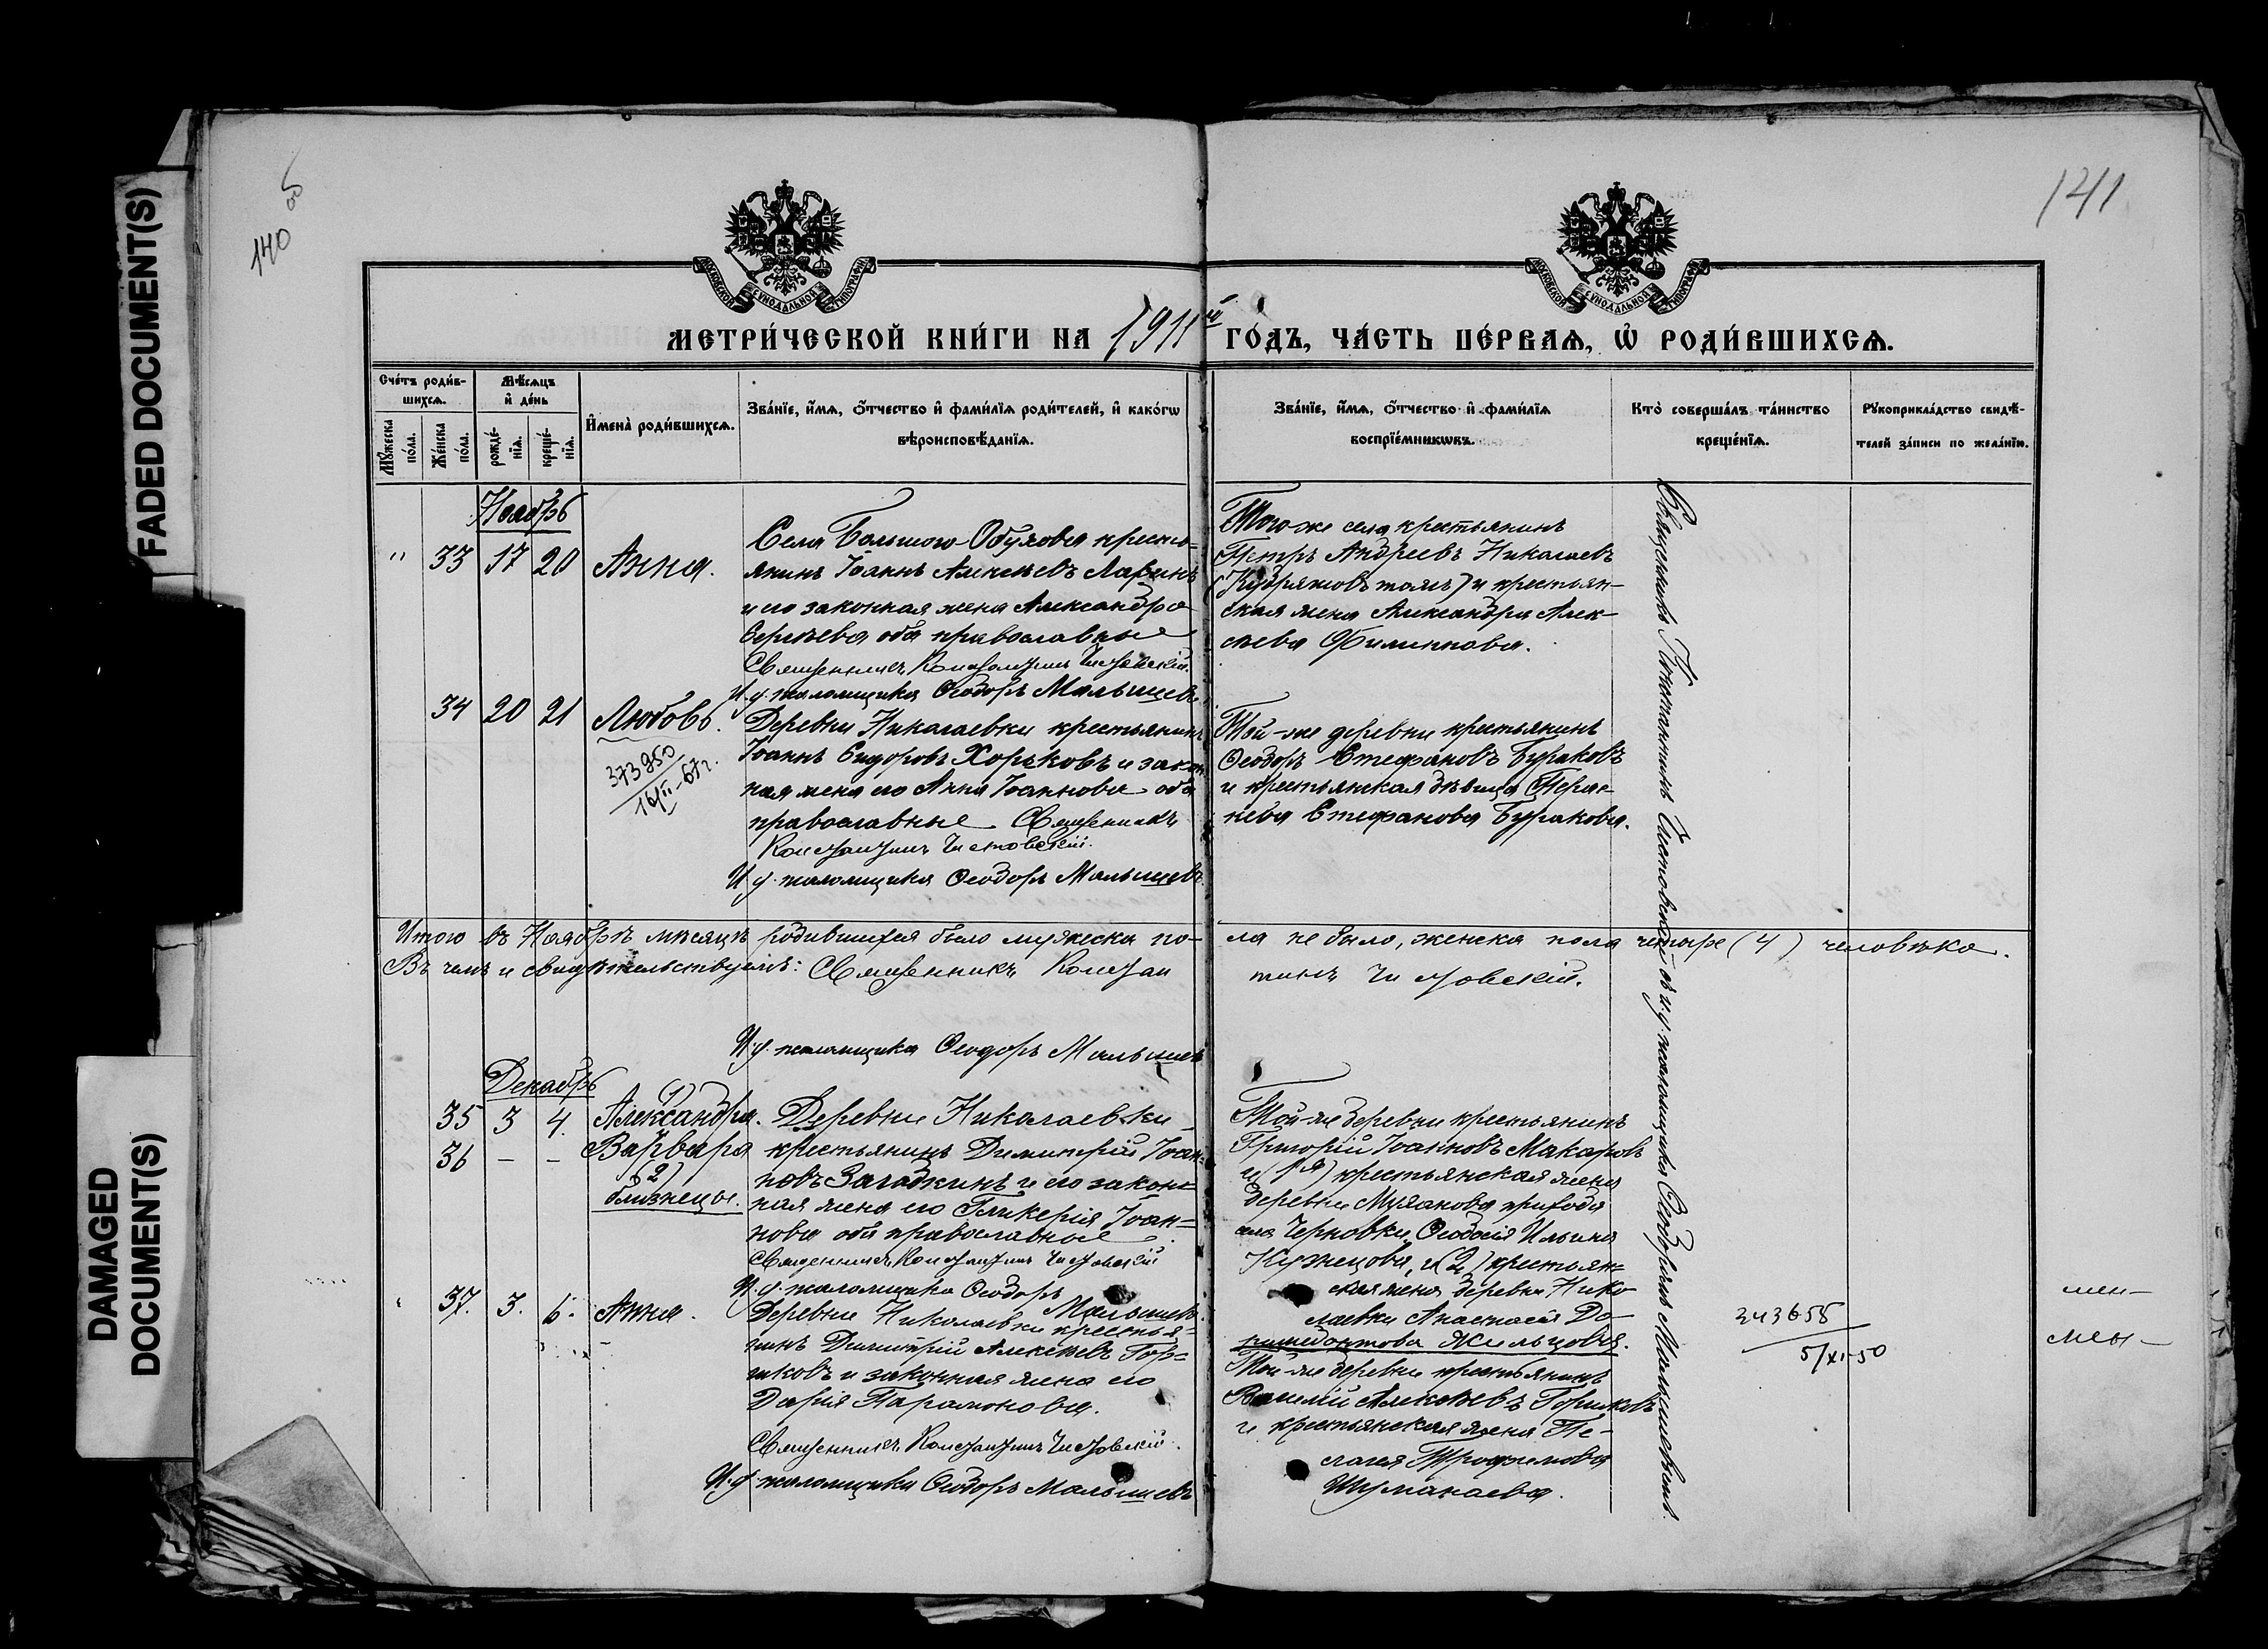 FADED DOCUMENT(S)
DAMAGED
DOCUMENT(S)
140 об
141
МОСКОВСКОЙ СѴНОДАЛЬНОЙ ТИПОГРАФІИ
МОСКОВСКОЙ СѴНОДАЛЬНОЙ ТИПОГРАФІИ
МЕТРИ́ЧЕСКОЙ КНИ́ГИ НА 1911й ГО́ДЪ, ЧА́СТЬ ПЕ́РВАѦ, Ѡ҆ РОДИ́ВШИХСѦ.
Сче́тъ роди́в-
шихсѧ.
Мꙋ́жеска
по́ла.
Же́нска
по́ла.
Мѣ́сѧцъ
и҆ де́нь
рожде́-
нїѧ.
креще́-
нїѧ.
И҆мена̀ роди́вшихсѧ.
Зва́нїе, и҆́мѧ, ѻ҆́тчество и҆ фами́лїѧ роди́телей, и҆ како́гѡ
вѣроисповѣ́данїѧ.
Зва́нїе, и҆́мѧ, ѻ҆́тчество и҆ фами́лїѧ
воспрїе́мникѡвъ.
Кто̀ соверша́лъ та́инство
креще́нїѧ.
Рꙋкоприкла́дство свидѣ́-
телей за́писи по жела́нїю.
Ноябрь
" 33 17 20 Анна.
Села Большого Обухова кресть-
янинъ Іоаннъ Алексѣевъ Ларинъ
и его законная жена Александра
Сергѣева оба православные
Священникъ Константинъ Чистовскій.
И. д. псаломщика Ѳеодоръ Малышевъ
Того-же села крестьянинъ
Петръ Андреевъ Николаевъ
(Кудряшовъ тожъ) и крестьян-
ская жена Александра Алек-
сѣева Филиппова.
34 20 21 Любовь.
373950
16/II-67г.
Деревни Николаевки крестьянинъ
Іоаннъ Сидоровъ Хорьковъ и закон-
ная жена его Анна Іоаннова оба
православные Священникъ
Константинъ Чистовскій.
И. д. псаломщика Ѳеодоръ Малышевъ
Той-же деревни крестьянинъ
Ѳеодоръ Стефановъ Бураковъ
и крестьянская дѣвица
Стефанова Буракова.
Итого въ Ноябрѣ мѣсяцѣ родившихся было мужеска по-ла не было, женска пола четыре (4) человѣка.
Въ чемъ и свидѣтельствуемъ: Священникъ Константинъ Чистовскій.
И. д. псаломщика Ѳеодоръ Малышевъ
Декабрь
35 3 4. 1) Александра.
36 – – Варвара
2)
близнецы.
Деревни Николаевки
крестьянинъ Димитрій Іоан-
новъ Загадкинъ и его закон-
ная жена его Гликерія Іоан-
нова оба православные
Священникъ Константинъ Чистовскій
И. д. псаломщика Ѳеодоръ
Малышевъ.
Той-же деревни крестьянинъ
Григорій Іоанновъ Макаровъ
и (1я) крестьянская жена
деревни прихода
села Черновки, Ѳеодосія Ильина
Кузнецова, и (2) крестьян-
ская жена деревни Нико-
лаевки Анастасія До-
Жильцова.
37. 3. 6. Анна.
Деревни Николаевки крестья-
нинъ Димитрій Алексѣевъ Гор-
шковъ и законная жена его
Дарія Парамонова.
Священникъ Константинъ Чистовскій.
И. д. псаломщика Ѳеодоръ Малышевъ
Той-же деревни крестьянинъ
Василій Алексѣевъ Горшковъ
и крестьянская жена Пе-
лагея Трофимова
Священникъ Константинъ Чистовскій съ и. д. псаломщика Ѳеодоромъ Малышевымъ.
343658
5/XI-50